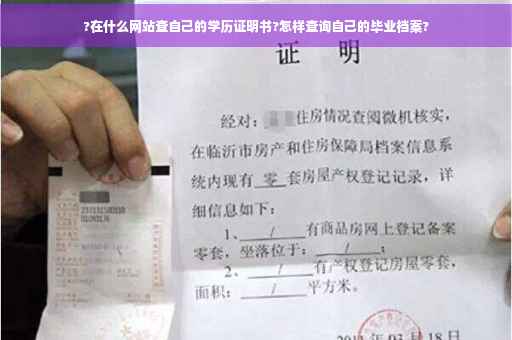 ?在什么网站查自己的学历证明书?怎样查询自己的毕业档案?
证 明
经对: 住房情况查阅微机核实,
在临沂市房产和住房保障局档案信息系
统内现有 零 套房屋产权登记记录, 详
细信息如下:
1、 / 有商品房网上登记备案
零套, 坐落位于: / ;
2、 / 有产权登记房屋零套,
面积: / 平方米。
03 月 18 日